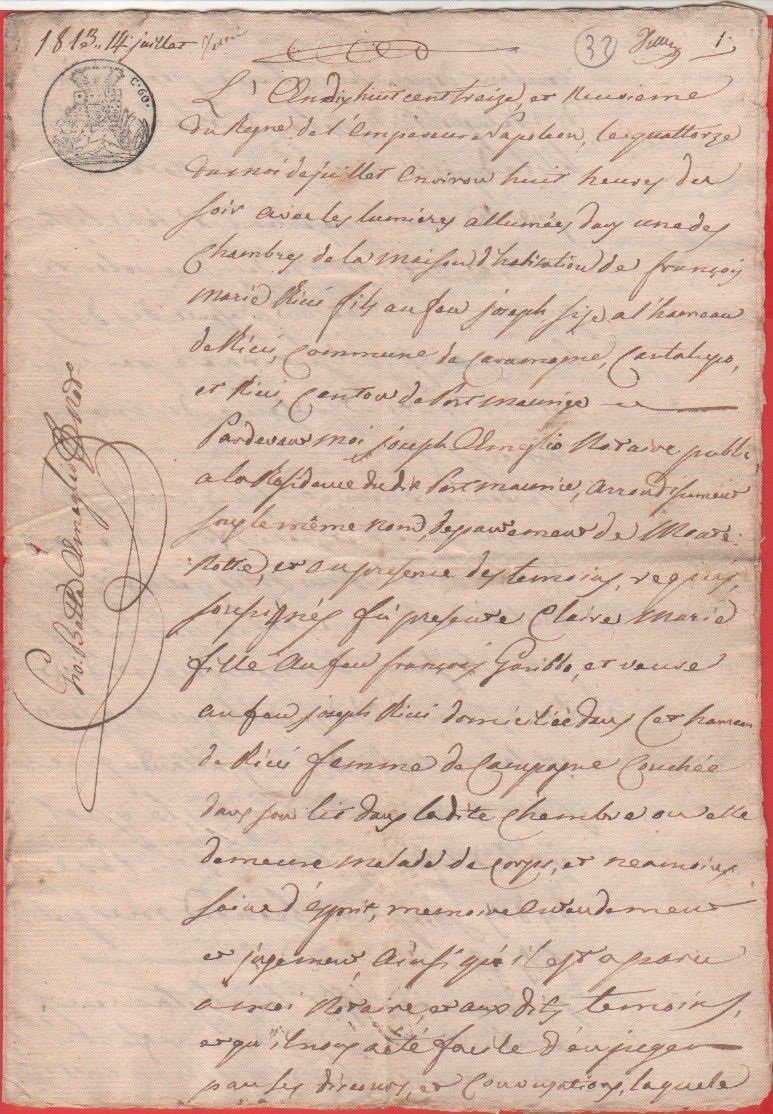 1813. 14 juillet
32
1.
C. 60.
L'An dix huit cent treize, et Neuvieme
du Regne de l'Empereur Napoleon, le quattorze
du mois de juillet environ huit heures du
soir avec les lumieres allumées dans une des
chambres de la maison d'habitation de françois
marie Ricci fils au feu joseph size a l'hameau
de Ricci, Commune de Caramagne, Cantalupo,
et Ricci, Canton de Port maurice
Pardevant moi joseph Ameglio Notaire public
a la Residence du dit Port maurice, arrondissement
sous le même nom, departement de Monte-
Notte, et au presence des temoins requis,
sousignés fu presente Claire Marie
fille au feu françois Garibbo, et veuve
au feu joseph Ricci domiciliée dans cet hameau
de Ricci femme de Campagne Couchée
dans son lit dans la dite chambre ou elle
demeure malade de Corps, et neanmoins
saine d'ésprit, memoire entendement
et jugement, ainsi qu'il est aparu
a moi Notaire, et aux dits temoins,
et qu'il nous a été facile d'en juger
par ses discours, et Conversations, laquele
Gio: Batta Ameglio Not.º